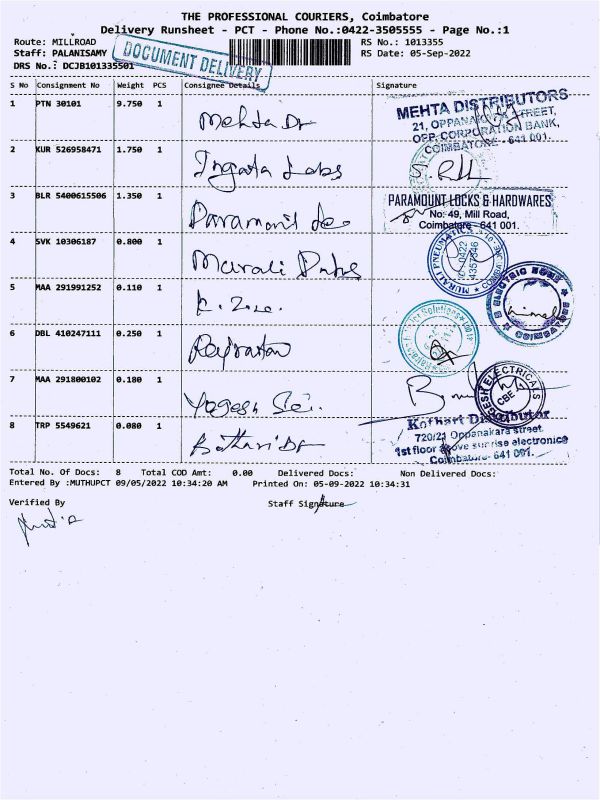 THE PROFESSIONAL COURIERS, Coimbatore
Delivery Runsheet - PCT - Phone No.:0422-3505555 - Page No.:1
Route: MILLROAD RS No.: 1013355
Staff: PALANISAMY RS Date: 05-Sep-2022
DRS No.: DCJB101335501
DOCUMENT DELIVERY
S No Consignment No Weight PCS Consignee Details Signature
1 PTN 30101 9.750 1 Mehta Dr
MEHTA DISTRIBUTORS
21, OPPANAKARA STREET,
OPP. CORPORATION BANK,
COIMBATORE - 641 001.
2 KUR 526958471 1.750 1 Ingata Labs
3 BLR 5400615506 1.350 1
PARAMOUNT LOCKS & HARDWARES
No: 49, Mill Road,
Coimbatore - 641 001.
4 SVK 10306187 0.800 1 Murali
MURALI PNEUMATIC
0422
4357346
5 MAA 291991252 0.110 1
ELECTRIC
COIMBATORE
6 DBL 410247111 0.250 1 Rajratan
Solutions
7 MAA 291800102 0.180 1 Yogesh
YOGESH ELECTRICALS
CBE
8 TRP 5549621 0.080 1
Kothari Distributor
720/21 Oppanakara street
1st floor above sunrise electronics
Coimbatore - 641 001.
Total No. Of Docs: 8 Total COD Amt: 0.00 Delivered Docs: Non Delivered Docs:
Entered By :MUTHUPCT 09/05/2022 10:34:20 AM Printed On: 05-09-2022 10:34:31
Verified By Staff Signature